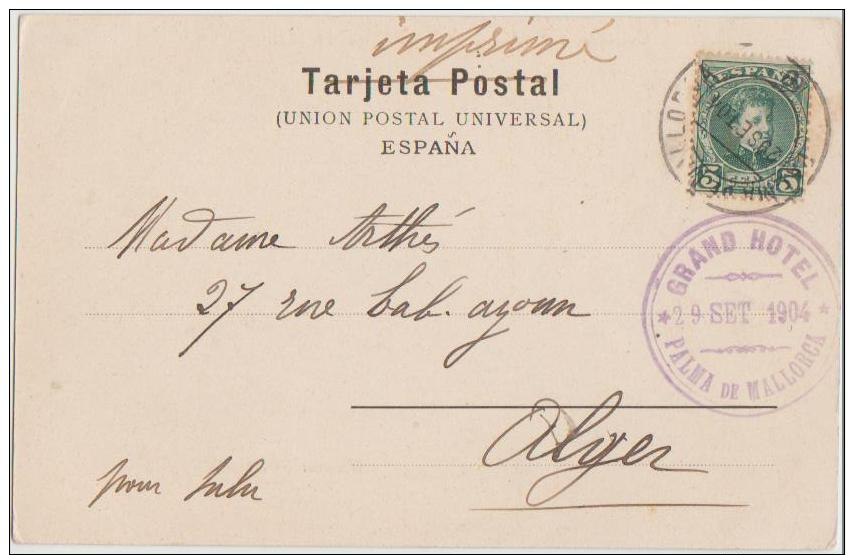 imprimé
Tarjeta Postal
(UNION POSTAL UNIVERSAL)
ESPAÑA
ESPAÑA
5 5
GRAND HOTEL
29 SET 1904
PALMA DE MALLORCA
Madame Arthés
27 rue Bab. azoun
Alger
pour Lulu